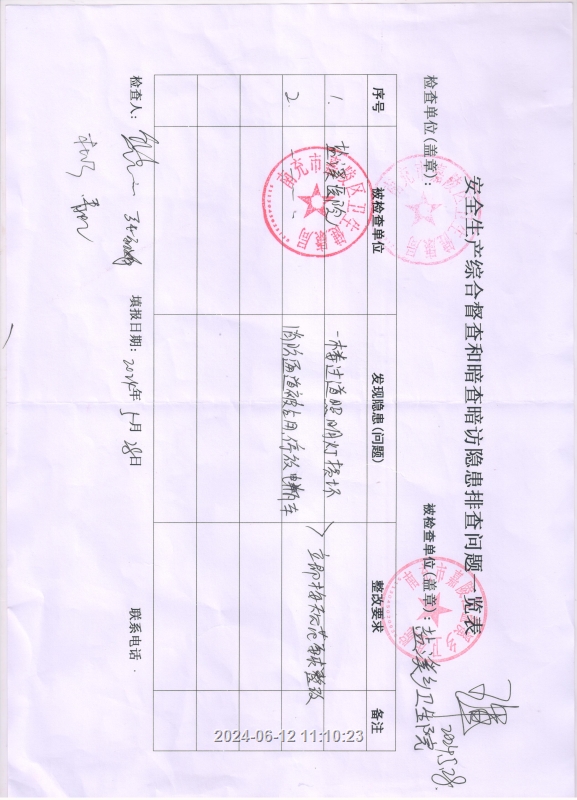 安全生产综合督查和暗查暗访隐患排查问题一览表
检查单位(盖章): 被检查单位(盖章): 盐溪乡卫生院
2024.5.28.
序号 被检查单位 发现隐患(问题) 整改要求 备注
1. 盐溪医院 一楼过道照明灯损坏
2. 消防通道被占用停放电瓶车
立即按规范要求整改
检查人: 填报日期: 2024年 5月 28日 联系电话:
2024-06-12 11:10:23